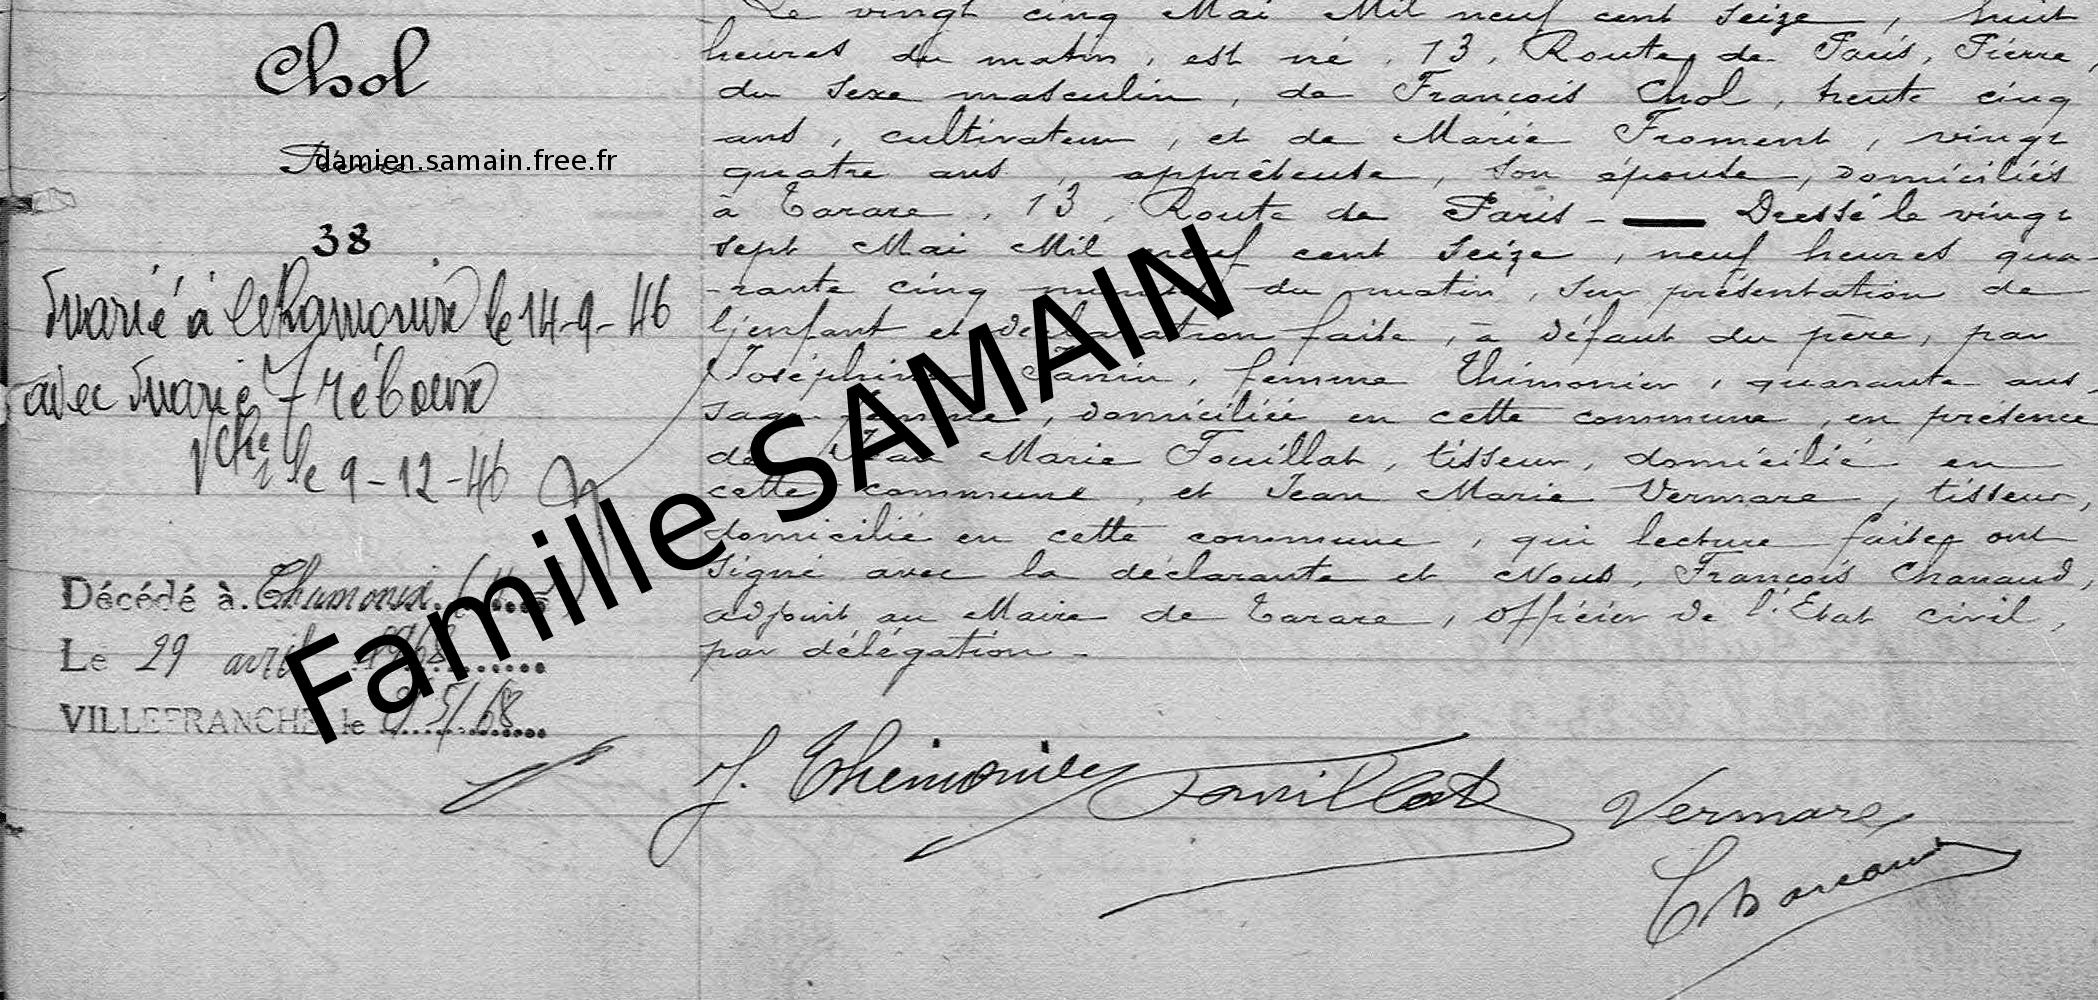 Chol
Pierre
damien.samain.free.fr
38
Marié à Chamonix le 14-9-46
avec Marie Fréboux
Vche le 9-12-46
Décédé à Chamonix
Le 29 avril 1968
VILLEFRANCHE le 9/5/68
Le vingt cinq Mai Mil neuf cent seize, huit
heures du matin, est né, 13, Route de Paris, Pierre,
du sexe masculin, de François Chol, trente cinq
ans, cultivateur, et de Marie Froment, vingt
quatre ans, apprêteuse, son épouse, domiciliés
à Tarare, 13, Route de Paris - Dressé le vingt
sept Mai Mil neuf cent seize, neuf heures qua-
-rante cinq minutes du matin, sur présentation de
l'enfant et déclaration faite, à défaut du père, par
Joséphine Janin, femme Thimonier, quarante ans
sage femme, domiciliée en cette commune, en présence
de Jean Marie Fouillat, tisseur, domicilié en
cette commune, et Jean Marie Vermare, tisseur,
domicilié en cette commune, qui lecture faite ont
signé avec la déclarante et Nous, François Chanaud,
adjoint au Maire de Tarare, officier de l'Etat civil,
par délégation -
Famille SAMAIN
J. Thimonier Fouillat Vermare